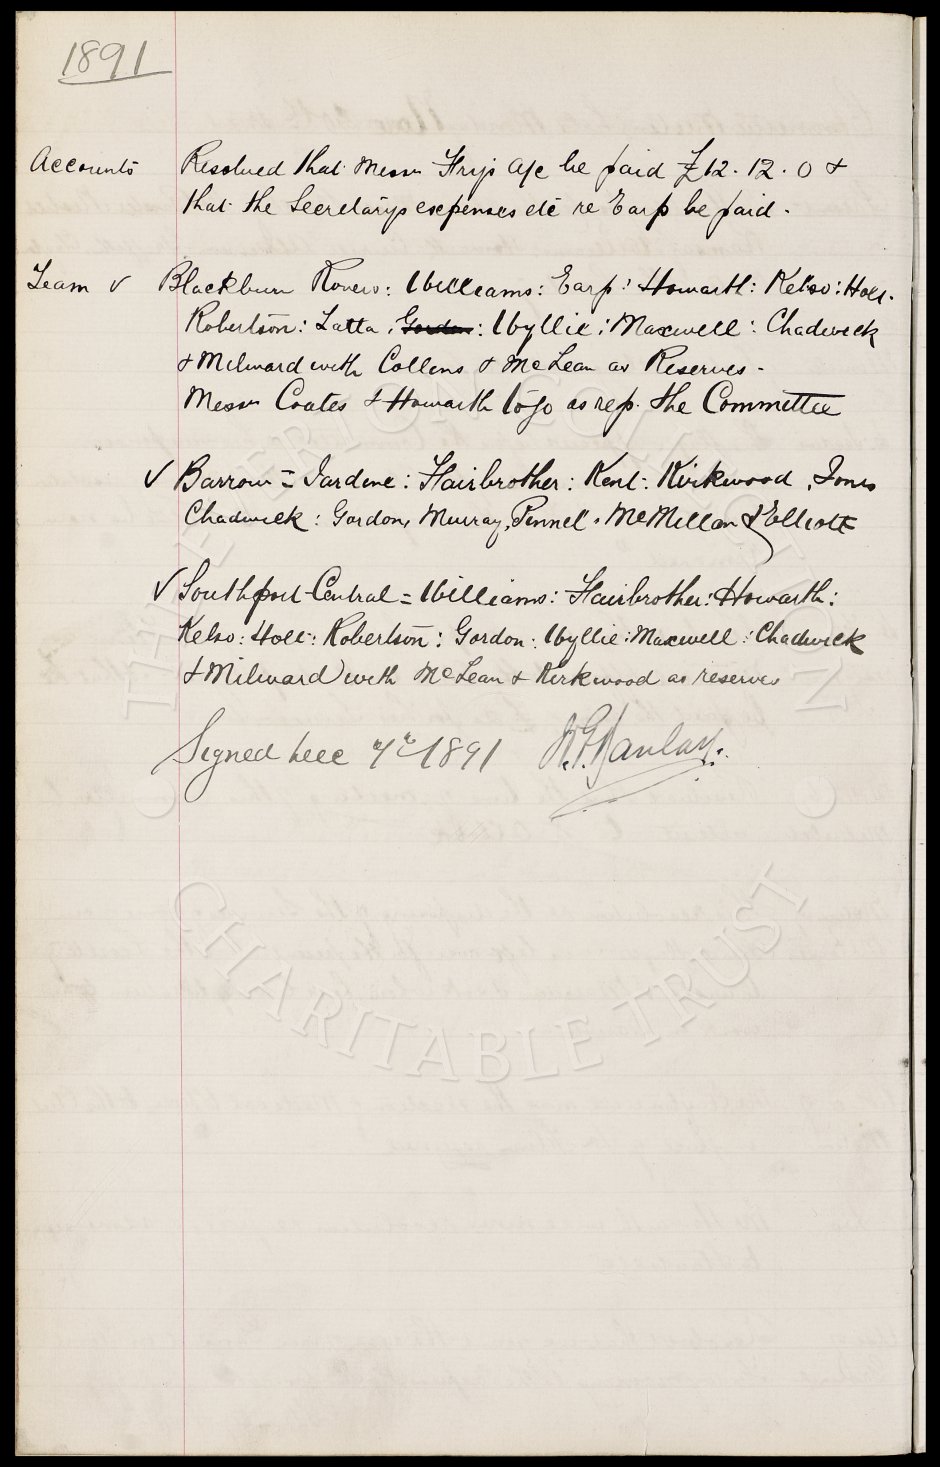 1891
Accounts Resolved that Messrs Frys a/c be paid £12.12.0 &
that the Secretarys expenses etc re Earp be paid.
Team v Blackburn Rovers: Williams: Earp: Howarth: Kelso: Holt.
Robertson: Latta: Gordon: Wyllie: Maxwell: Chadwick
& Milward with Collins & McLean as Reserves.
Messrs Coates & Howarth to go as rep. the Committee
✓ Barrow = Jardine: Fairbrother: Kent: Kirkwood, Jones
Chadwick: Gordon, Murray, Pennell. McMillan & Elliott
✓ Southport Central = Williams: Fairbrother: Howarth:
Kelso: Holt: Robertson: Gordon: Wyllie: Maxwell: Chadwick
& Milward with McLean & Kirkwood as reserves
Signed Dec 7th 1891
THE EVERTON COLLECTION
CHARITABLE TRUST